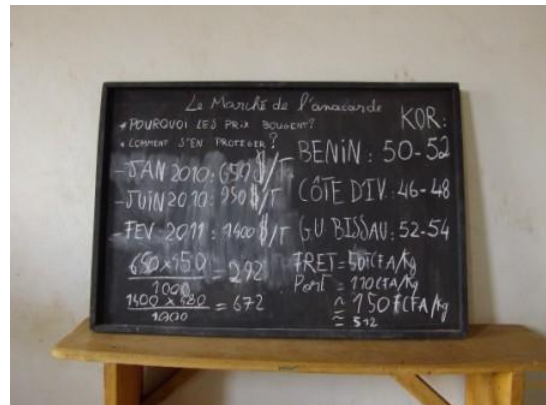 Le Marché de l'anacarde
* POURQUOI LES PRIX BOUGENT?
* COMMENT S'EN PROTEGER?
- JAN 2010: 650 $/T
- JUIN 2010: 950 $/T
- FEV 2011: 1400 $/T
650 x 450
1000
= 292
1400 x 480
1000
= 672
KOR:
BENIN: 50-52
CÔTE D'IV: 46-48
GU BISSAU: 52-54
FRET = 50 FCFA/Kg
Port = 110 CFA/Kg
≈ 150 FCFA/Kg
≈ 512